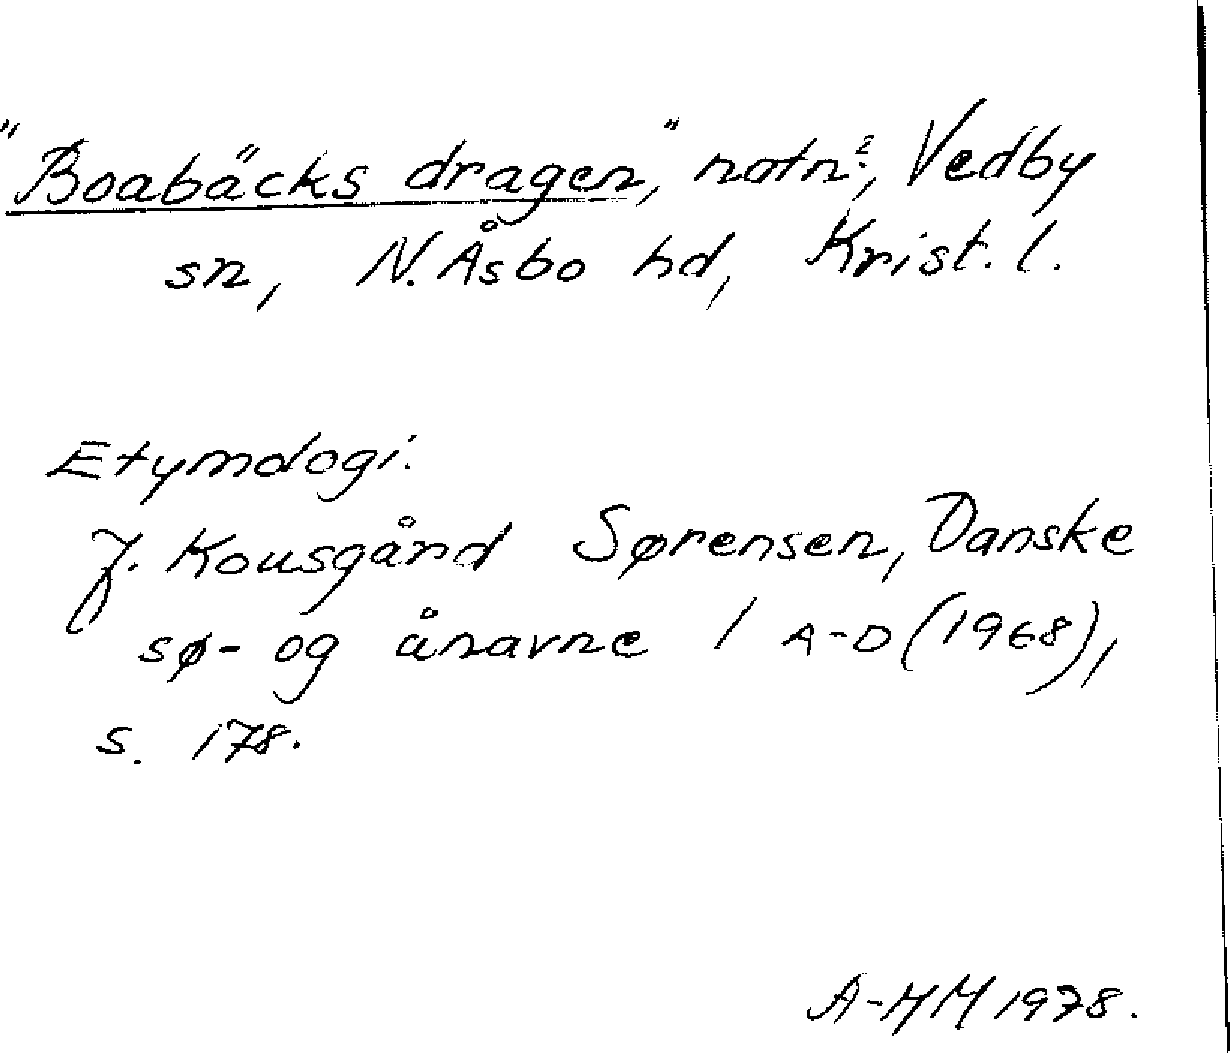 "Boabäcks dragen," natn?, Vedby
sn, N. Åsbo hd, Krist. l.
Etymologi.
J. Kousgård Sørensen, Danske
sø- og ånavne 1 A-D (1968),
s. 178.
A-HM 1978.